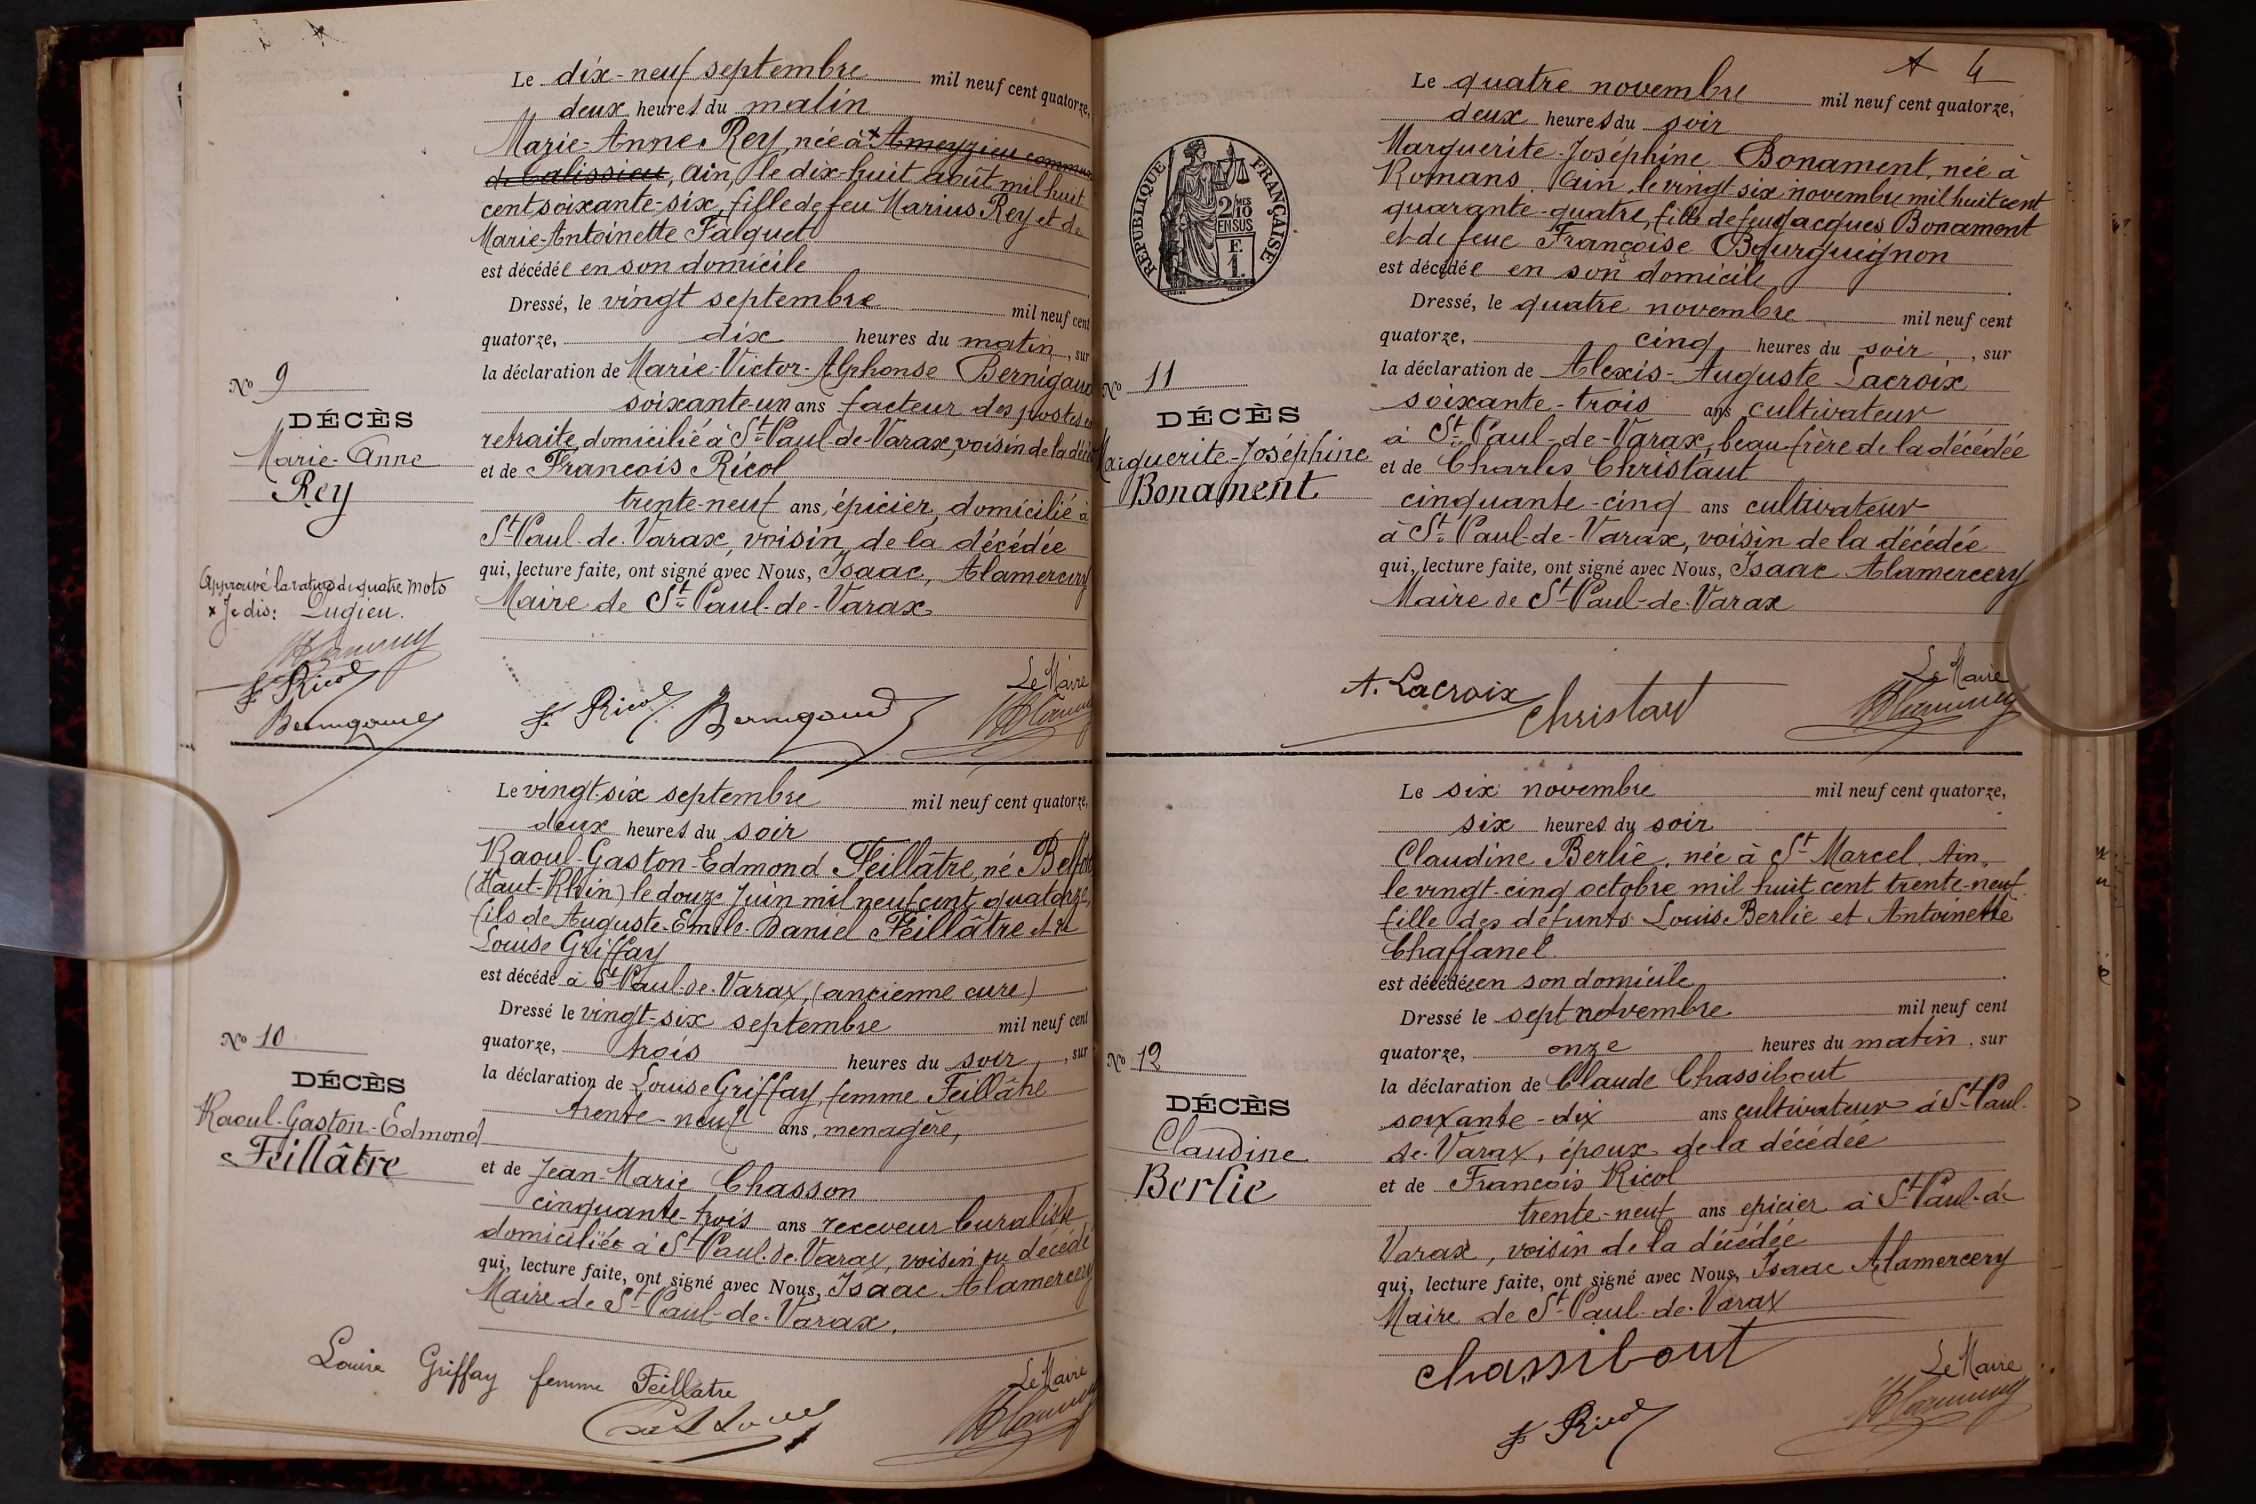 Le dix-neuf septembre mil neuf cent quatorze,
deux heures du matin
Marie-Anne Rey, née à x Ameyzieu commune
de Talissieu, Ain, le dix-huit août mil huit
cent soixante-six, fille de feu Marius Rey et de
Marie-Antoinette Falquet
est décédée en son domicile
Dressé, le vingt septembre mil neuf cent
quatorze, dix heures du matin, sur
la déclaration de Marie-Victor-Alphonse Bernigaud
soixante-un ans facteur des postes en
retraite, domicilié à St Paul-de-Varax, voisin de la décédée
et de François Ricol
trente-neuf ans, épicier, domicilié à
St Paul-de-Varax, voisin de la décédée
qui, lecture faite, ont signé avec Nous, Isaac, Alamercery
Maire de St Paul-de-Varax
No 9
DÉCÈS
Marie-Anne
Rey
Approuvé la rature de quatre mots
x Je dis: Lugieu.
F. Ricol
Bernigaud
Le Maire
F. Ricol Bernigaud
Le vingt-six septembre mil neuf cent quatorze,
deux heures du soir
Raoul-Gaston-Edmond Feillâtre, né Belfort
(Haut-Rhin) le douze Juin mil neuf cent quatorze,
fils de Auguste-Emile-Daniel Feillâtre et de
Louise Griffay
est décédé à St Paul-de-Varax, (ancienne cure)
Dressé le vingt-six septembre mil neuf cent
quatorze, trois heures du soir, sur
la déclaration de Louise Griffay, femme Feillâtre
trente-neuf ans, menagère,
et de Jean-Marie Chasson
cinquante-trois ans receveur buraliste
domiciliés à St Paul-de-Varax, voisin du décédé
qui, lecture faite, ont signé avec Nous, Isaac Alamercery
Maire de St Paul-de-Varax.
No 10
DÉCÈS
Raoul-Gaston-Edmond
Feillâtre
Louise Griffay femme Feillatre
Le Maire
4
Le quatre novembre mil neuf cent quatorze,
deux heures du soir
Marguerite-Joséphine Bonament, née à
Romans, Ain, le vingt six novembre mil huit cent
quarante-quatre, fille de feu Jacques Bonament
et de feue Françoise Bourguignon
est décédée en son domicile
Dressé, le quatre novembre mil neuf cent
quatorze, cinq heures du soir, sur
la déclaration de Alexis-Auguste Lacroix
soixante-trois ans cultivateur
à St Paul-de-Varax, beau-frère de la décédée
et de Charles Christaut
cinquante-cinq ans cultivateur
à St Paul-de-Varax, voisin de la décédée
qui, lecture faite, ont signé avec Nous, Isaac Alamercery
Maire de St Paul-de-Varax
RÉPUBLIQUE FRANÇAISE
2/10 MES
EN SUS
F.
1.
No 11
DÉCÈS
Marguerite-Joséphine
Bonament
Le Maire
A. Lacroix Christaut
Le six novembre mil neuf cent quatorze,
six heures du soir
Claudine Berlie, née à St Marcel, Ain,
le vingt-cinq octobre mil huit cent trente-neuf
fille des défunts Louis Berlie et Antoinette
Chaffanel
est décédée en son domicile
Dressé le sept novembre mil neuf cent
quatorze, onze heures du matin, sur
la déclaration de Claude Chassibout
soixante-dix ans cultivateur à St Paul-
de-Varax, époux de la décédée
et de François Ricol
trente-neuf ans epicier à St Paul-de
Varax, voisin de la décédée
qui, lecture faite, ont signé avec Nous, Isaac Alamercery
Maire de St Paul-de-Varax
No 12
DÉCÈS
Claudine
Berlie
Chassibout
Le Maire
F. Ricol